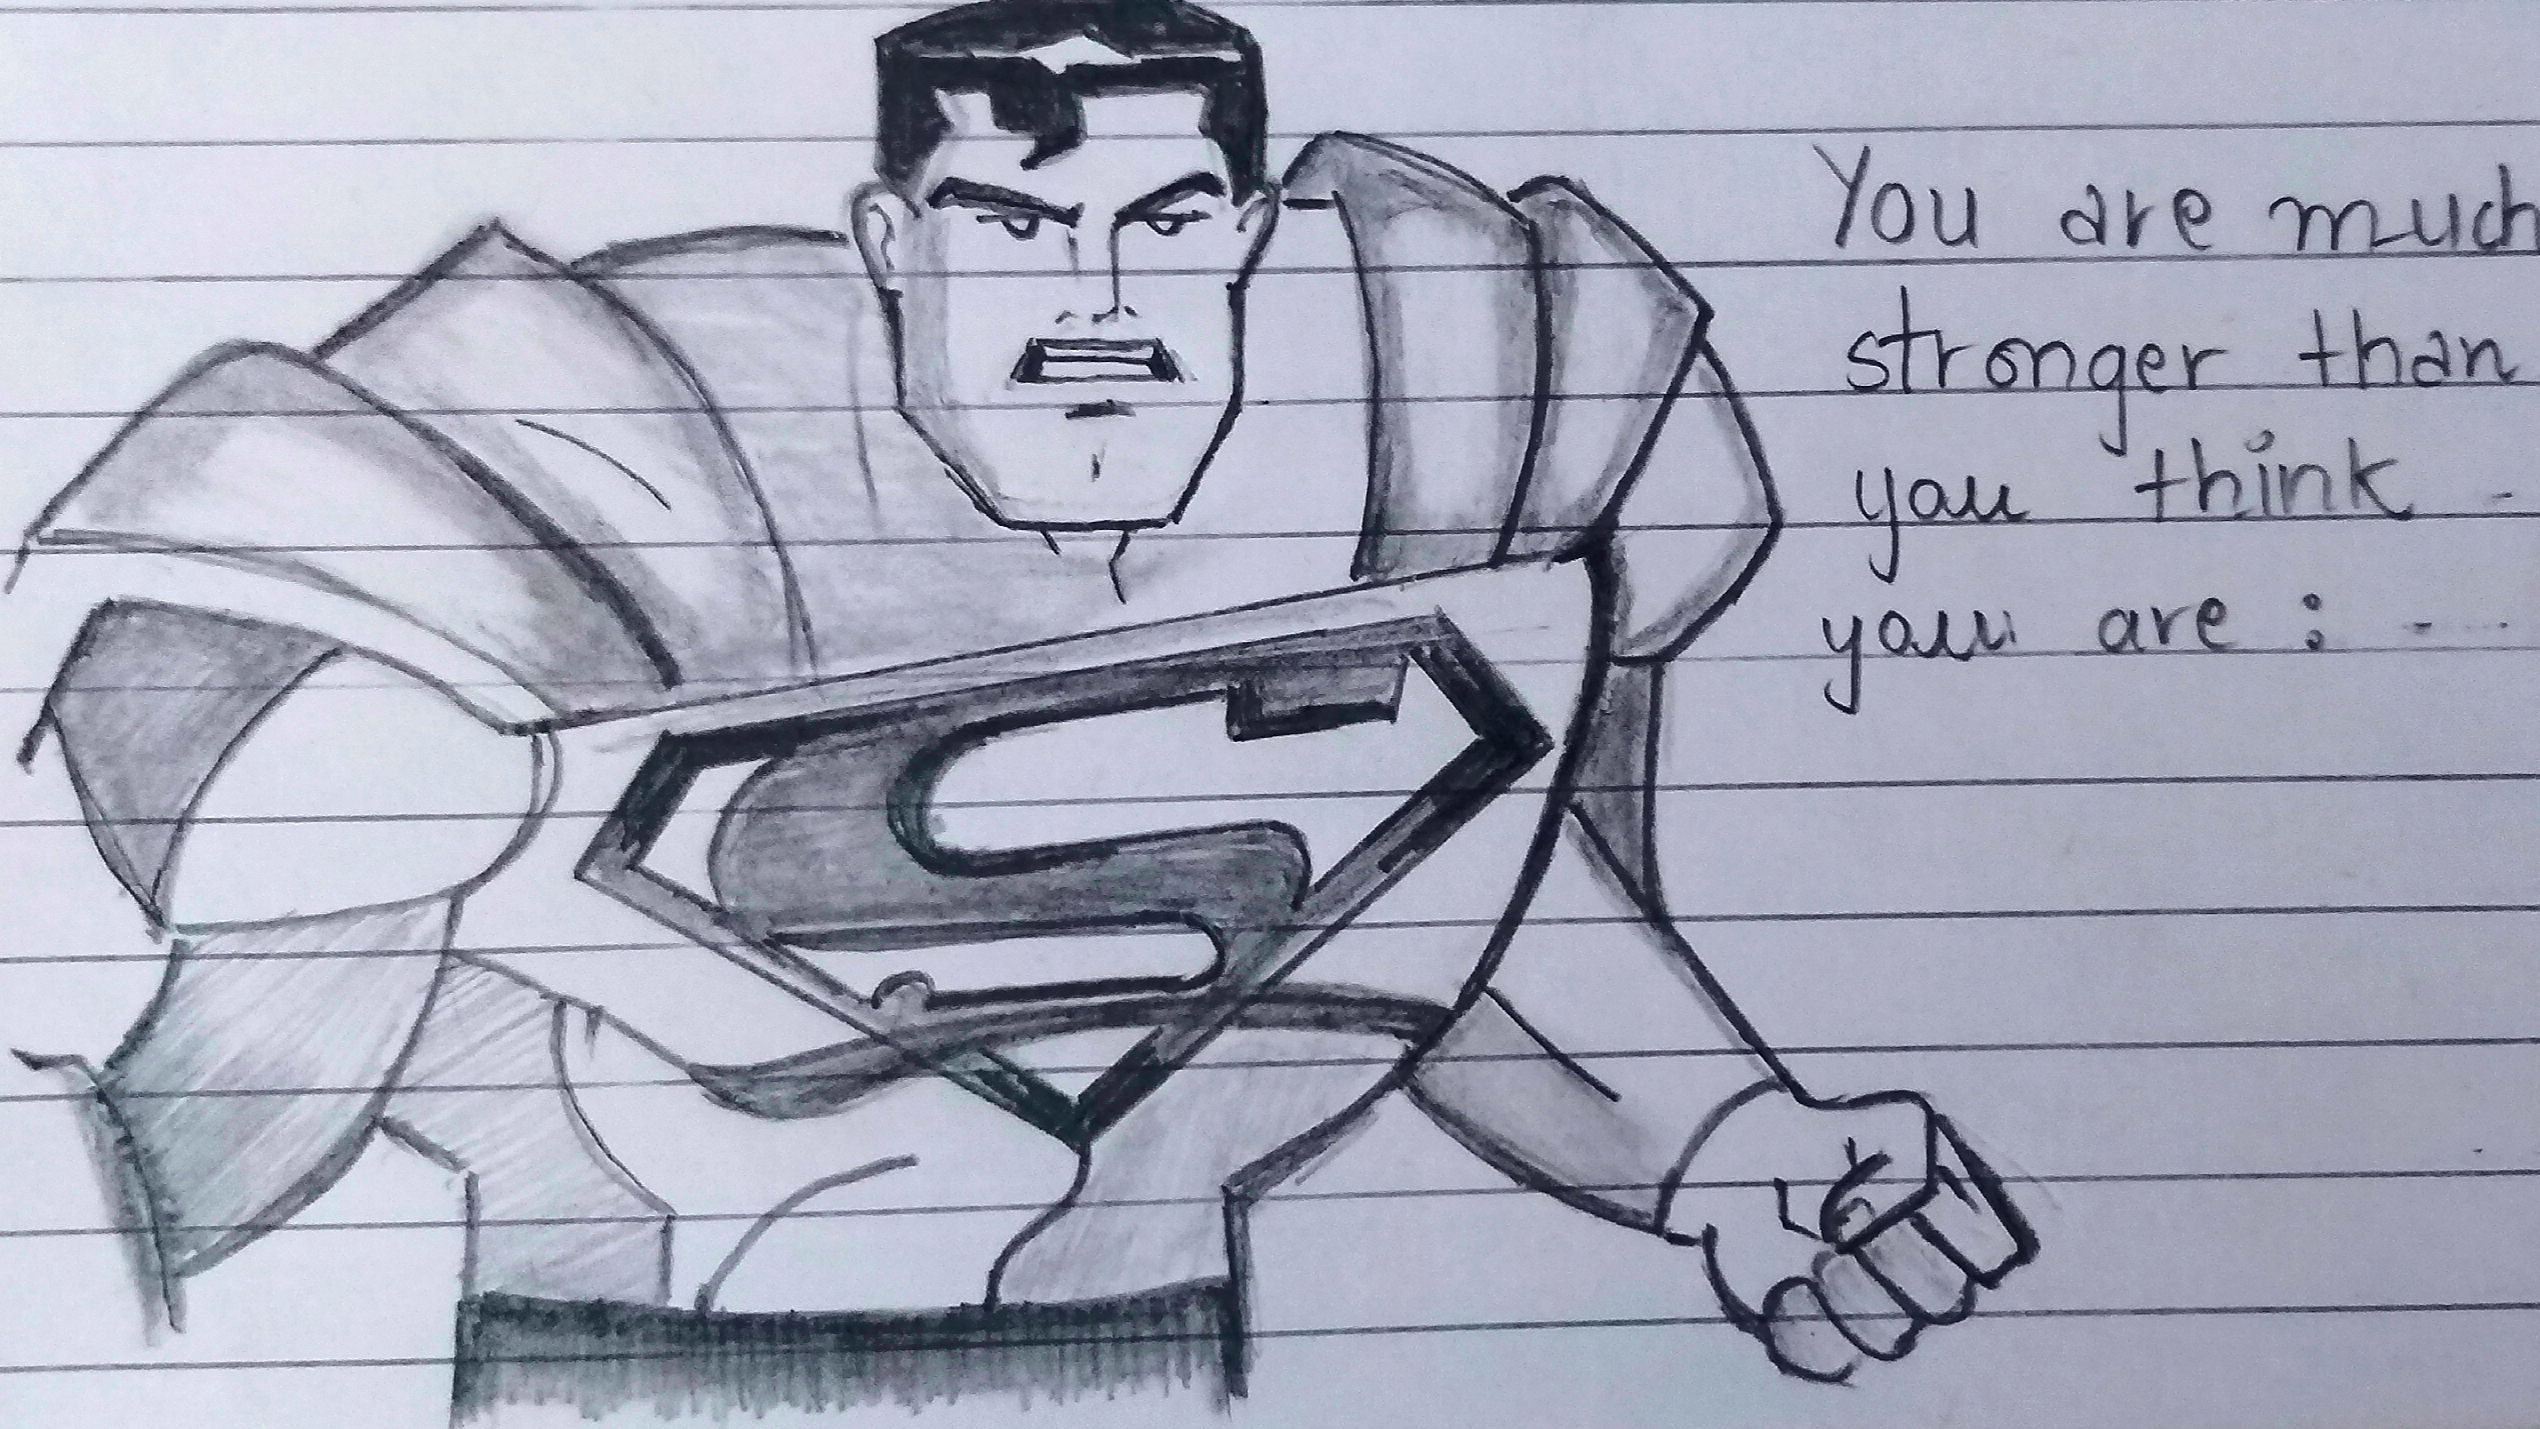 You are much
stronger than
you think -
you are : - ...
S